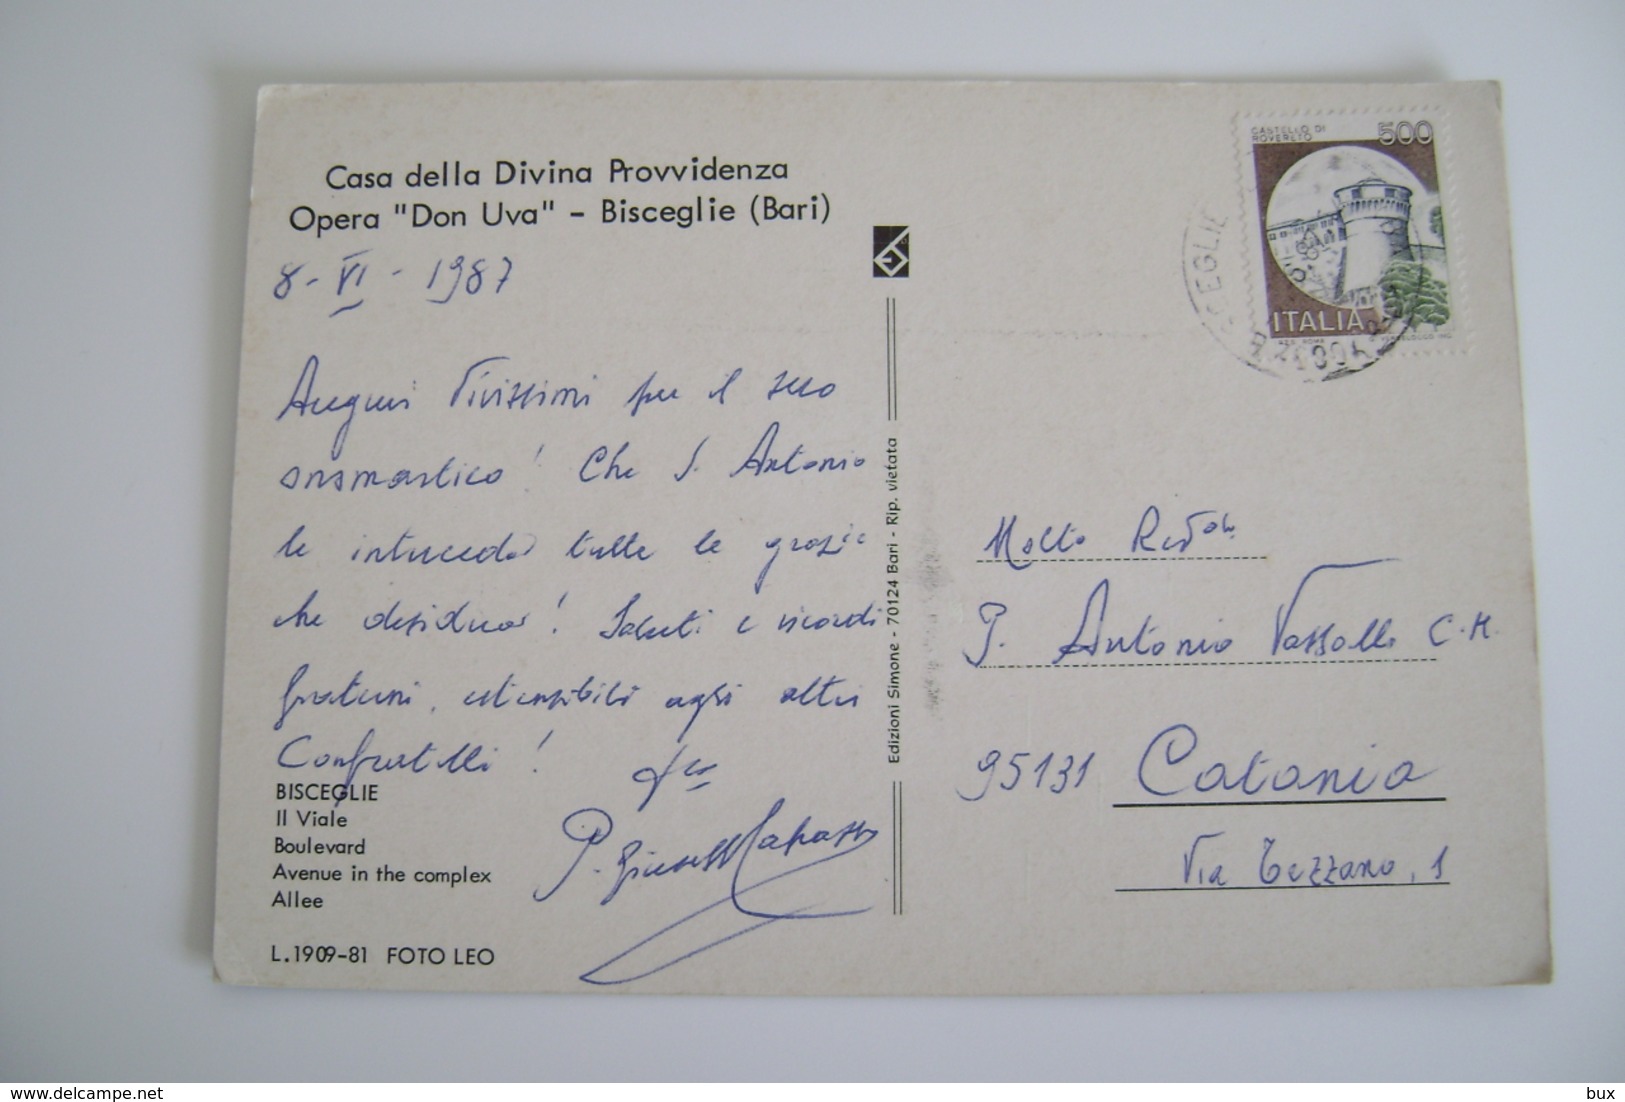 Casa della Divina Provvidenza
Opera "Don Uva" - Bisceglie (Bari)
8 - VI - 1987
Auguri vivissimi per il suo
onomastico! Che S. Antonio
le interceda tutte le grazie
che desidera! Saluti e ricordi
fraterni, estensibili agli altri
Confratelli!
P. Giuseppe
BISCEGLIE
Il Viale
Boulevard
Avenue in the complex
Allee
L.1909-81 FOTO LEO
Edizioni Simone - 70124 Bari - Rip. vietata
CASTELLO DI
ROVERETO
500
ITALIA
Molto
P. Antonio Vassallo C.M.
95131 Catania
Via Tezzano, 1
delcampe.net
bux